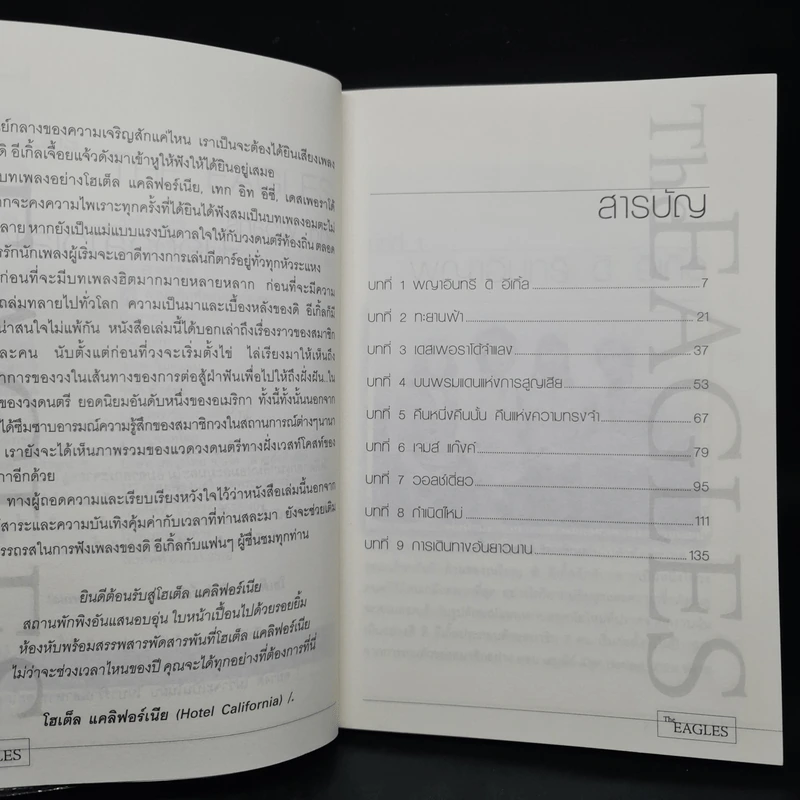 ย์กลางของความเจริญสักแค่ไหน เราเป็นจะต้องได้ยินเสียงเพลง
ดิ อีเกิ้ลเจื้อยแจ้วดังมาเข้าหูให้ฟังให้ได้ยินอยู่เสมอ
บทเพลงอย่างโฮเต็ล แคลิฟอร์เนีย, เทก อิท อีซี่, เดสเพอราโด้
กจะคงความไพเราะทุกครั้งที่ได้ยินได้ฟังสมเป็นบทเพลงอมตะไม่
ลาย หากยังเป็นแม่แบบแรงบันดาลใจให้กับวงดนตรีท้องถิ่น ตลอด
รรักนักเพลงผู้เริ่มจะเอาดีทางการเล่นกีตาร์อยู่ทั่วทุกหัวระแหง
ก่อนที่จะมีบทเพลงฮิตมากมายหลายหลาก ก่อนที่จะมีความ
ถล่มทลายไปทั่วโลก ความเป็นมาและเบื้องหลังของดิ อีเกิ้ลก็มี
น่าสนใจไม่แพ้กัน หนังสือเล่มนี้ได้บอกเล่าถึงเรื่องราวของสมาชิก
ละคน นับตั้งแต่ก่อนที่วงจะเริ่มตั้งไข่ ไล่เรียงมาให้เห็นถึง
าการของวงในเส้นทางของการต่อสู้ฝ่าฟันเพื่อไปให้ถึงฝั่งฝัน..ใน
ของวงดนตรี ยอดนิยมอันดับหนึ่งของอเมริกา ทั้งนี้ทั้งนั้นนอกจาก
ได้ซึมซาบอารมณ์ความรู้สึกของสมาชิกวงในสถานการณ์ต่างๆนานา
เรายังจะได้เห็นภาพรวมของแวดวงดนตรีทางฝั่งเวสท์โคสท์ของ
กาอีกด้วย
ทางผู้ถอดความและเรียบเรียงหวังใจไว้ว่าหนังสือเล่มนี้นอกจาก
สาระและความบันเทิงคุ้มค่ากับเวลาที่ท่านสละมา ยังจะช่วยเติม
รรถรสในการฟังเพลงของดิ อีเกิ้ลกับแฟนๆ ผู้ชื่นชมทุกท่าน
ยินดีต้อนรับสู่โฮเต็ล แคลิฟอร์เนีย
สถานพักพิงอันแสนอบอุ่น ใบหน้าเปื้อนไปด้วยรอยยิ้ม
ห้องหับพร้อมสรรพสารพัดสารพันที่โฮเต็ล แคลิฟอร์เนีย
ไม่ว่าจะช่วงเวลาไหนของปี คุณจะได้ทุกอย่างที่ต้องการที่นี่
โฮเต็ล แคลิฟอร์เนีย (Hotel California) /.
LES
The EAGLES
สารบัญ
บทที่ 1 พญาอินทรี ดิ อีเกิ้ล 7
บทที่ 2 ทะยานฟ้า 21
บทที่ 3 เดสเพอราโด้จำแลง 37
บทที่ 4 บนพรมแดนแห่งการสูญเสีย 53
บทที่ 5 คืนหนึ่งคืนนั้น คืนแห่งความทรงจำ 67
บทที่ 6 เจมส์ แก๊งค์ 79
บทที่ 7 วอลช์เดี่ยว 95
บทที่ 8 กำเนิดใหม่ 111
บทที่ 9 การเดินทางอันยาวนาน 135
The EAGLES